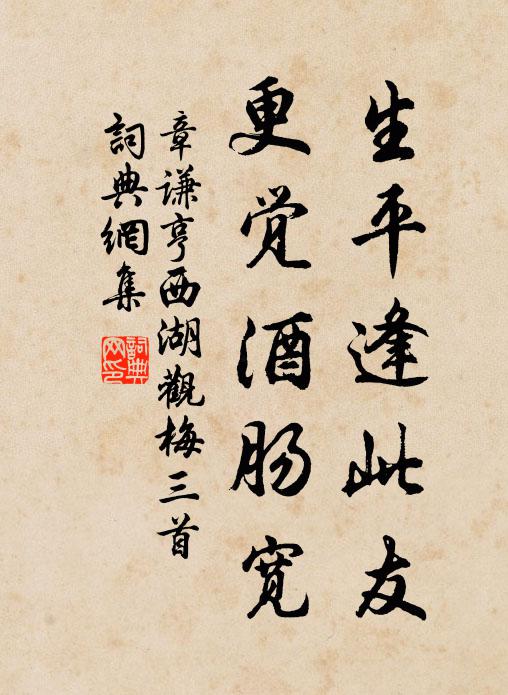 生平逢此友
更觉酒肠宽
章谦亨西湖觀梅三首
詞典網集
詞典网印